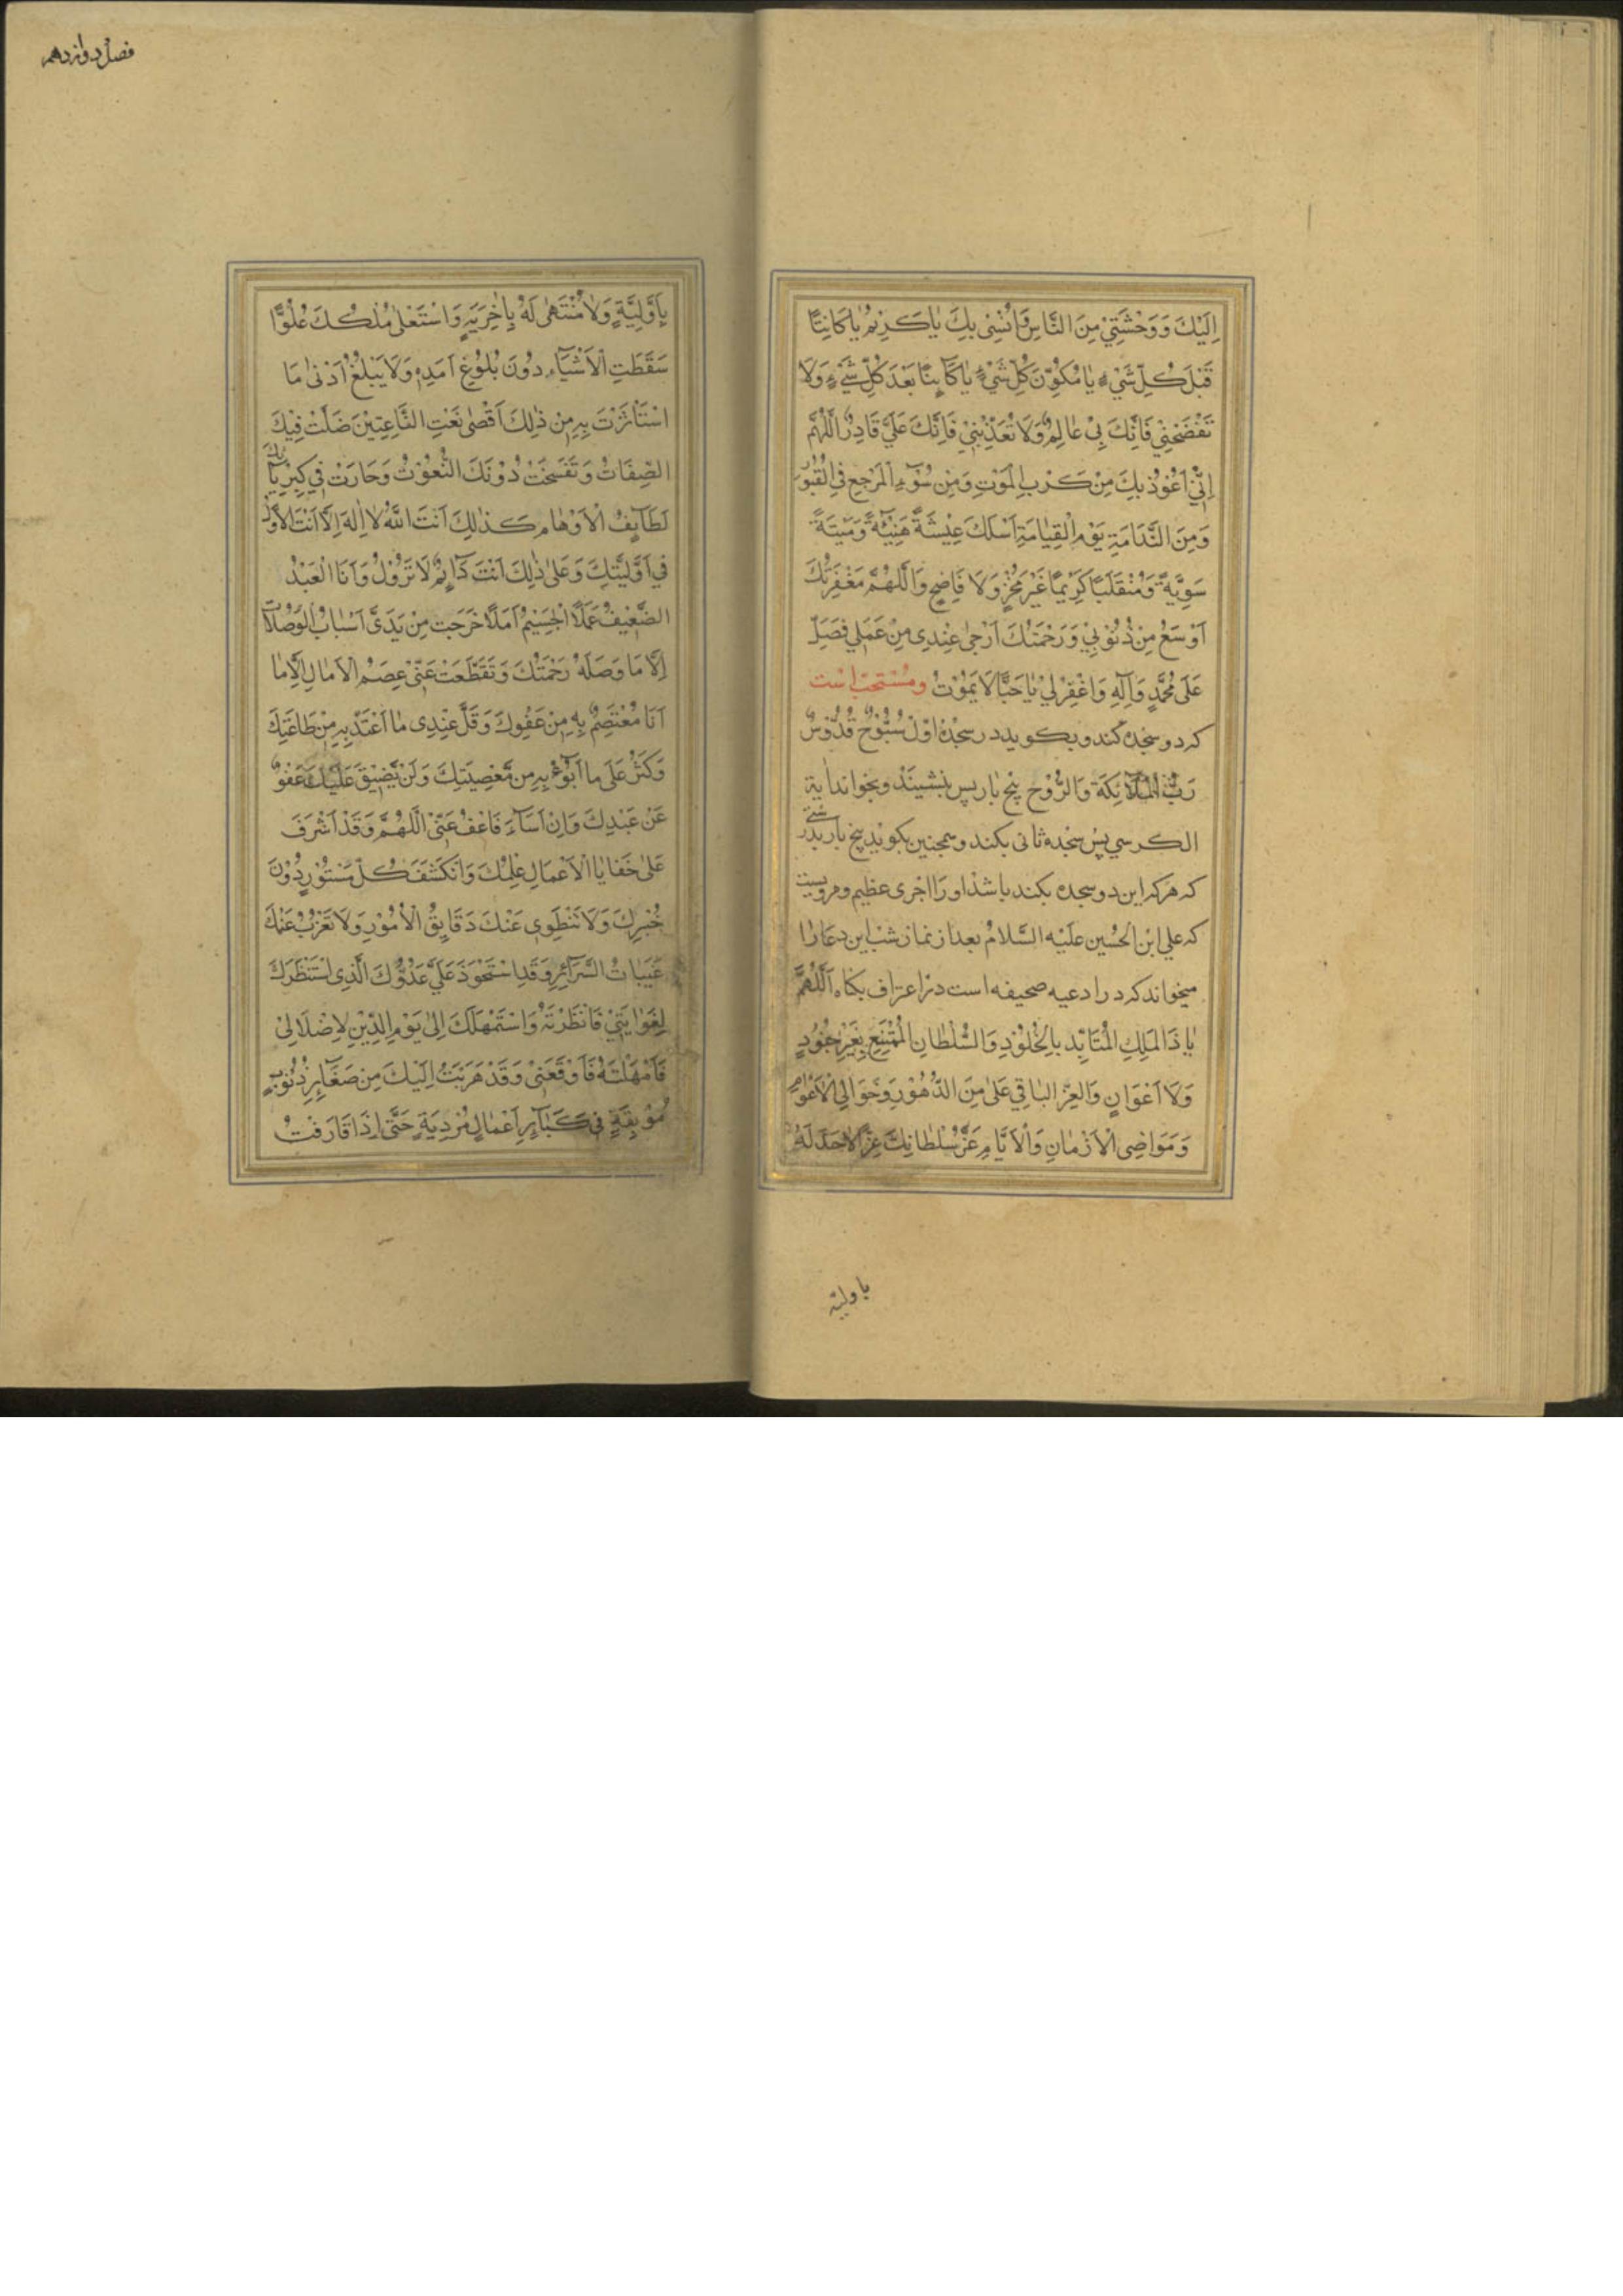 اِلَيْكَ وَوَحْشَتِيْ مِنَ النَّاسِ وَاٰنُسْنِى بِكَ يٰا كَرِيْمُ يٰا كٰائِنًا
قَبْلَ كُلِّ شَيْءٍ يٰا مُكَوِّنَ كُلِّ شَيْءٍ يٰا كٰائِنًا بَعْدَ كُلِّ شَيْءٍ وَلَا
تَفْضَحْنِيْ فَاِنَّكَ بِىْ عٰالِمٌ وَلَا تُعَذِّبْنِيْ فَاِنَّكَ عَلَيَّ قَادِرٌ اَللّٰهُمَّ
اِنِّيْ اَعُوْذُ بِكَ مِنْ كَرْبِ الْمَوْتِ وَمِنْ سُوْٓءِ الْمَرْجِعِ فِى الْقُبُوْرِ
وَمِنَ النَّدَامَةِ يَوْمَ الْقِيٰامَةِ اَسْلَكَ عِيْشَةً هَنِيْئَةً وَمَيْتَةً
سَوِيَّةً وَمُنْقَلَبًا كَرِيْمًا غَيْرَ مُخْزٍ وَلَا فَاضِحٍ وَاَللّٰهُمَّ مَغْفِرَتُكَ
اَوْسَعُ مِنْ ذُنُوْبِيْ وَرَحْمَتُكَ اَرْجٰى عِنْدِى مِنْ عَمَلِي فَصَلِّ
عَلٰى مُحَمَّدٍ وَاٰلِهِ وَاغْفِرْ لِيْ يٰا حَيًّا لَا يَمُوْتُ ومُسْتَحَبْ اسْت
كه دو سجده كند وبكويد در سجدهٔ اوّل سُبُّوْحٌ قُدُّوْسٌ
رَبُّ الْمَلٰٓائِكَةِ وَالرُّوْحِ پنج بار پس بنشيند وبخواند اٰية
الكرسي پس سجده ثانى بكند وهمچنين بكويد پنج بار بدرستى
كه هركه اين دو سجده بكند باشد او را اجرى عظيم ومرويست
كه علي ابن الحُسين عليْه السَّلامُ بعد از نماز شب اين دعا را
ميخواند كه در ادعيه صحيفه است در اعتراف بكناه اَللّٰهُمَّ
يٰا ذَا الْمَلِكِ الْمُتَأَبِّدِ بِالْخُلُوْدِ وَالسُّلْطٰانِ الْمُمْتَنِعِ بِغَيْرِ جُنُوْدٍ
وَلَا اَعْوَانٍ وَالْعِزِّ البٰاقِي عَلٰى مِنَ الدُّهُوْرِ وَخَوَالِى الْاَعْوٰامِ
وَمَوَاضِى الْاَزْمٰانِ وَالْاَيَّامِ عَزَّ سُلْطٰانُكَ عِزًّا لَاحَدَّ لَهُ
باوليّة
فصل دوازدهم
بِاَوَّلِيَّةٍ وَلٰا مُنْتَهٰى لَهُ بِاٰخِرِيَةٍ وَاسْتَعْلٰى مُلْكُكَ عُلُوًّا
سَقَطَتِ الْاَشْيَآءِ دُوْنَ بُلُوْغِ اَمَدِهِ وَلَا يَبْلُغُ اَدْنٰى مَا
اسْتَأْثَرْتَ بِهِ مِنْ ذٰلِكَ اَقْصٰى نَعْتِ النَّاعِتِيْنَ ضَلَّتْ فِيْكَ
الصِّفَاتُ وَتَفَسَّخَتْ دُوْنَكَ النُّعُوْتُ وَحَارَتْ فِي كِبْرِيَآئِكَ
لَطَآئِفُ الْاَوْهٰامِ كَذٰلِكَ اَنْتَ اللّٰهُ لٰا اِلٰهَ اِلَّا اَنْتَ الْاَوَّلُ
فِي اَوَّلِيَّتِكَ وَعَلٰى ذٰلِكَ اَنْتَ دَآئِمٌ لَا تَزُوْلُ وَاَنَا الْعَبْدُ
الضَّعِيْفُ عَمَلًا الْجَسِيْمُ اَمَلًا خَرَجَت مِنْ يَدَىَّ اَسْبَابُ الْوُصُلَاتِ
اِلَّا مَا وَصَلَهُ رَحْمَتُكَ وَتَقَطَّعَتْ عَنِّىْ عِصَمُ الْاٰمٰالِ اِلَّا مٰا
اَنَا مُعْتَصِمٌ بِهِ مِنْ عَفْوِكَ وَقَلَّ عِنْدِى مٰا اَعْتَدُّ بِهِ مِنْ طَاعَتِكَ
وَكَثُرَ عَلَى مٰا اَبُوْٓءُ بِهِ مِنْ مَّعْصِيَتِكَ وَلَنْ يَّضِيْقَ عَلَيْكَ عَفْوٌ
عَنْ عَبْدِكَ وَاِنْ اَسَآءَ فَاعْفُ عَنِّىْ اَللّٰهُمَّ وَقَدْ اَشْرَفَ
عَلٰى خَفٰايٰا الْاَعْمٰالِ عِلْمُكَ وَانْكَشَفَ كُلُّ مَسْتُوْرٍ دُوْنَ
خُبْرِكَ وَلَا تَنْطَوِي عَنْكَ دَقَايِقُ الْاُمُوْرِ وَلَا تَعْزُبُ عَنْكَ
غَيِّبَاتُ السَّرَآئِرِ وَقَدِ اسْتَحْوَذَ عَلَيَّ عَدُوُّكَ الَّذِى اسْتَنْظَرَكَ
لِغَوٰايَتِيْ فَاَنْظَرْتَهُ وَاسْتَمْهَلَكَ اِلٰى يَوْمِ الدِّيْنِ لِاِضْلَالِيْ
فَاَمْهَلْتَهُ فَاَوْقَعَنِىْ وَقَدْ هَرَبْتُ اِلَيْكَ مِنْ صَغَآئِرِ ذُنُوْبٍ
مُوْبِقَةٍ وَكَبَآئِرِ اَعْمٰالٍ مُرْدِيَةٍ حَتّٰى اِذَا قَارَفْتُ